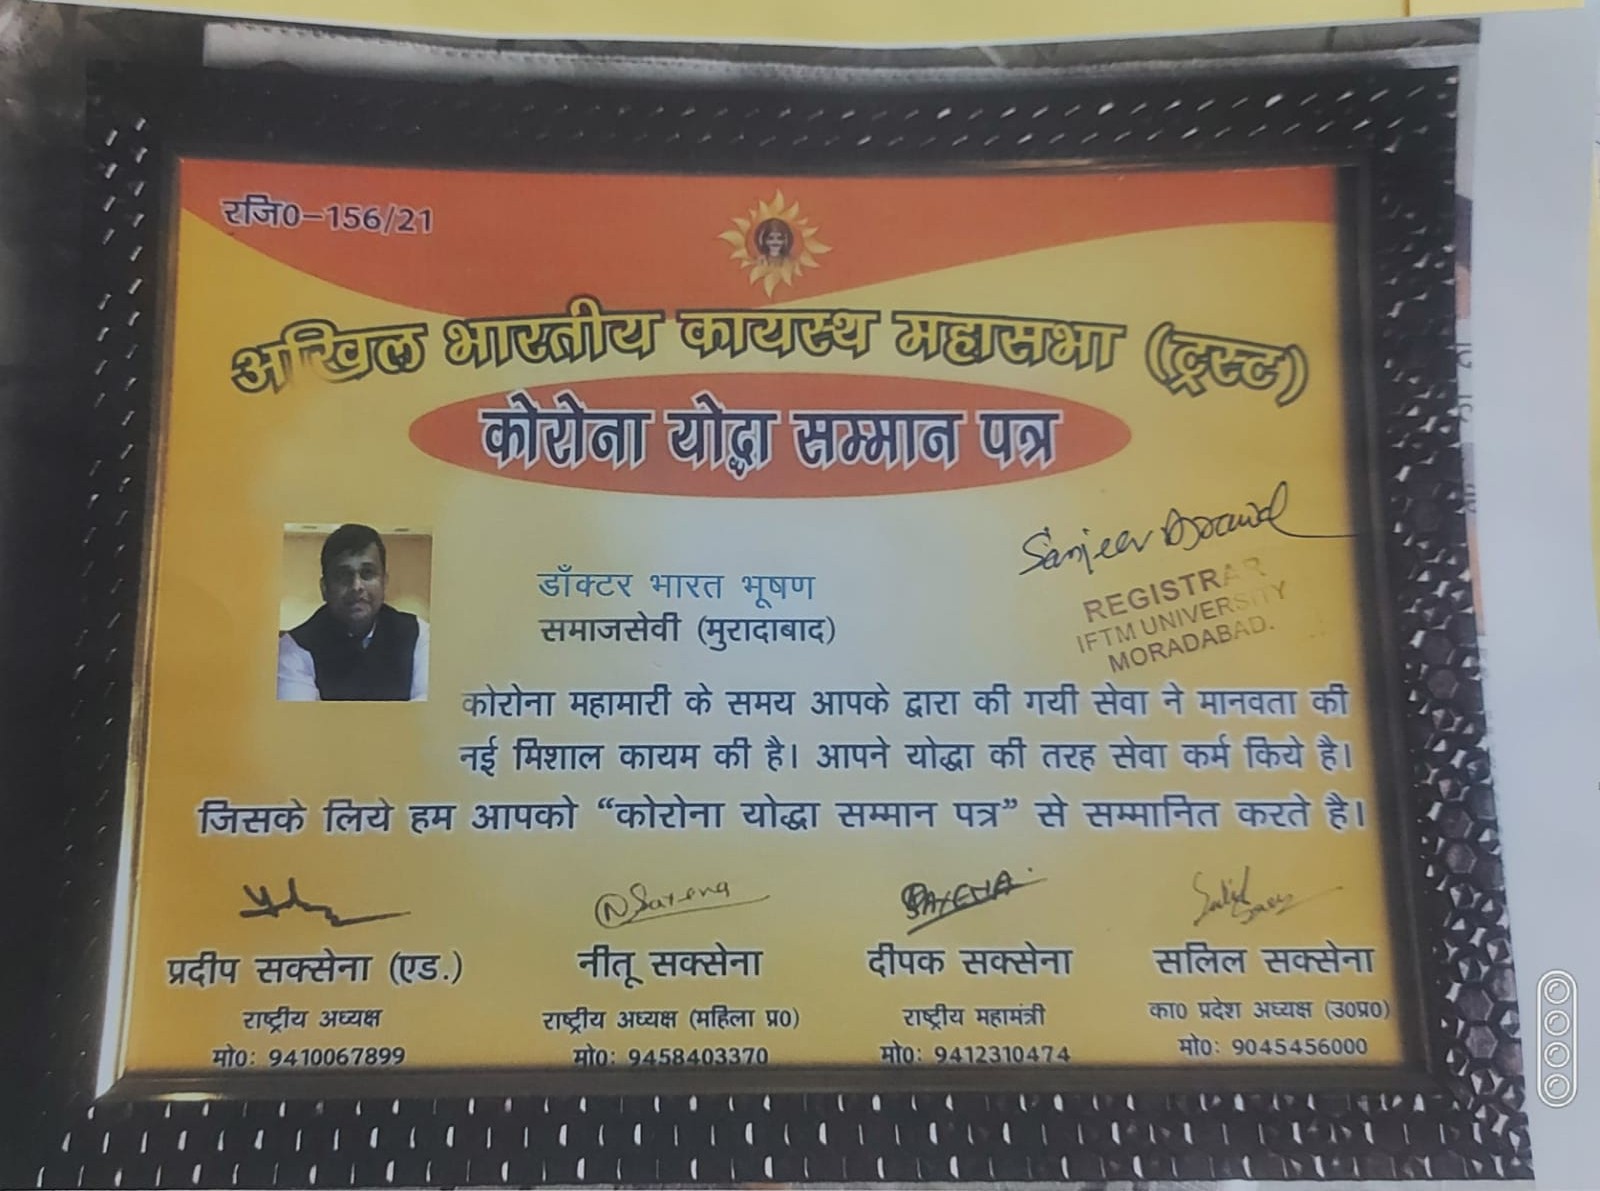 रजि0-156/21
अखिल भारतीय कायस्थ महासभा (ट्रस्ट)
कोरोना योद्धा सम्मान पत्र
Sanjeev Agrawal
डॉक्टर भारत भूषण
समाजसेवी (मुरादाबाद)
REGISTRAR
IFTM UNIVERSITY
MORADABAD.
कोरोना महामारी के समय आपके द्वारा की गयी सेवा ने मानवता की
नई मिशाल कायम की है। आपने योद्धा की तरह सेवा कर्म किये है।
जिसके लिये हम आपको “कोरोना योद्धा सम्मान पत्र” से सम्मानित करते है।
N Saxena SAXENA
प्रदीप सक्सेना (एड.) नीतू सक्सेना दीपक सक्सेना सलिल सक्सेना
राष्ट्रीय अध्यक्ष राष्ट्रीय अध्यक्ष (महिला प्र0) राष्ट्रीय महामंत्री का0 प्रदेश अध्यक्ष (उ0प्र0)
मो0: 9410067899 मो0: 9458403370 मो0: 9412310474 मो0: 9045456000